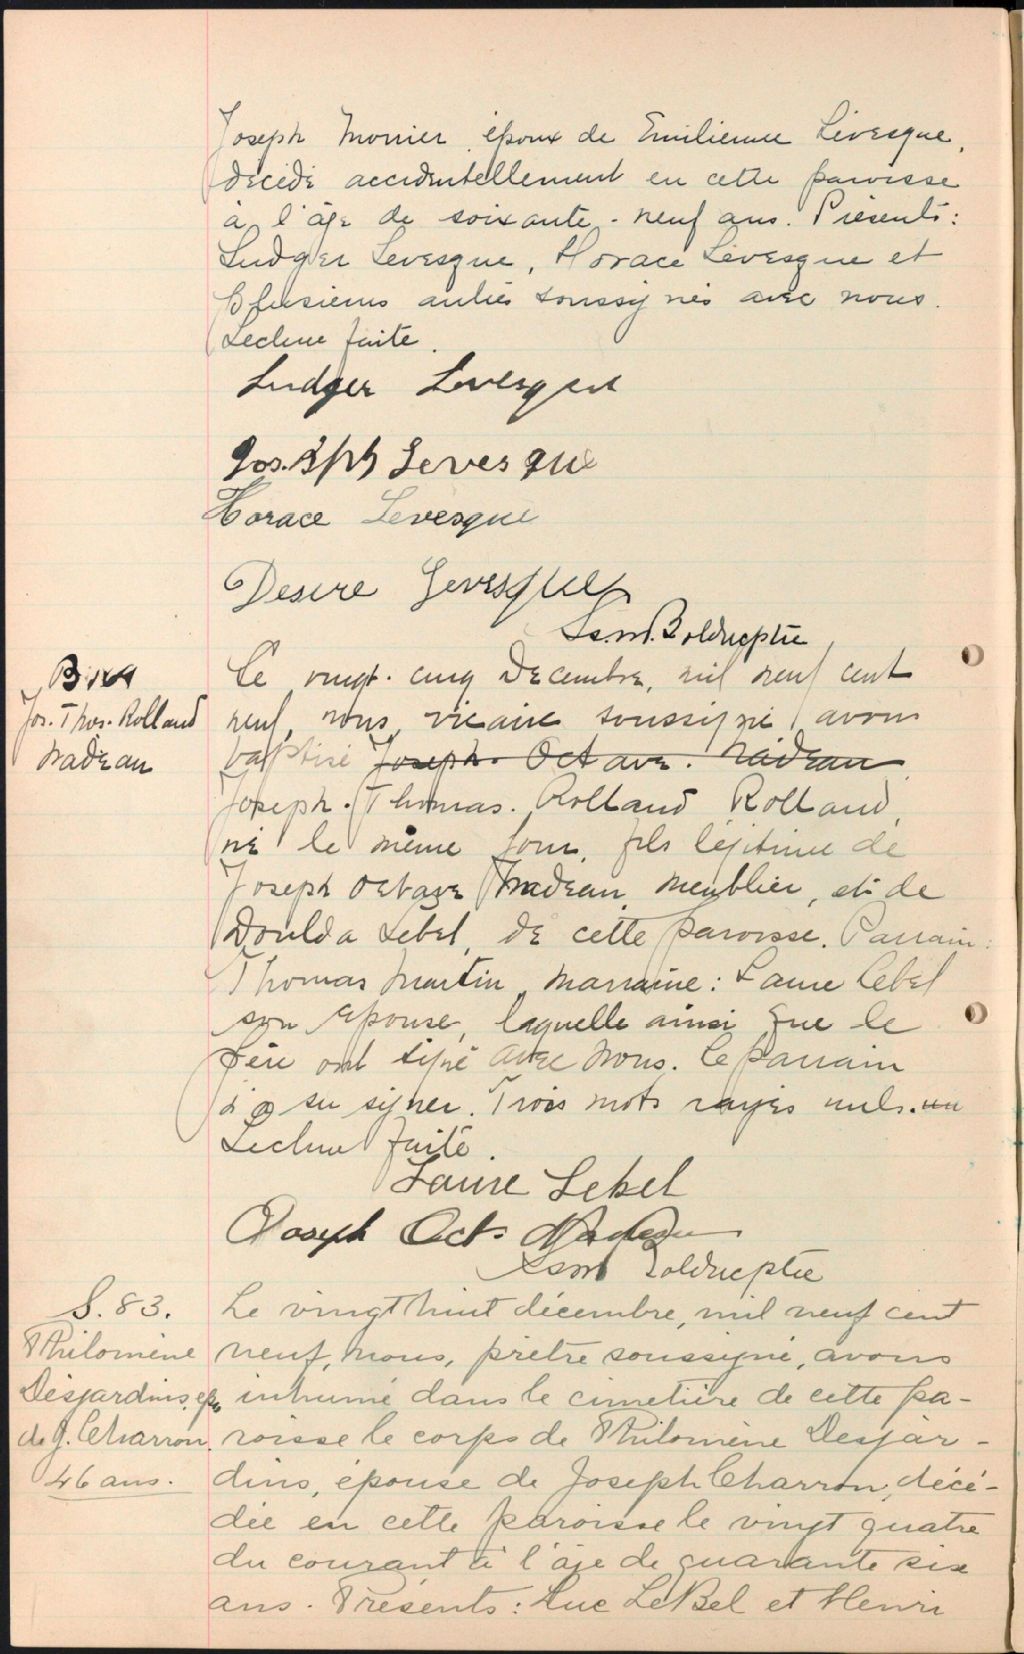 Joseph Monier, époux de Emilienne Lévesque,
décédé accidentellement en cette paroisse
à l'âge de soixante-neuf ans. Présents:
Ludger Levesque, Horace Lévesque et
plusieurs autres soussignés avec nous.
Lecture faite.
Ludger Levesque
Joseph Levesque
Horace Levesque
Desire Levesque
Ls. M. Bolduc ptre
B
Jos. Thos. Rolland
Nadeau
Ce vingt-cinq Décembre, mil neuf cent
neuf, nous, vicaire soussigné, avons
baptisé Joseph. Octave. Nadeau
Joseph. Thomas. Rolland Rolland,
né le même jour, fils légitime de
Joseph Octave Nadeau, meublier, et de
Doulda Lebel, de cette paroisse. Parrain:
Thomas Martin, marraine: Laure Lebel
son épouse, laquelle ainsi que le
père ont signé avec nous. Le parrain
a su signer. Trois mots rayés nuls.
Lecture faite.
Laure Lebel
Joseph Oct. Nadeau
Bolduc ptre
S. 83.
Philomène
Desjardins, eps
de J. Charron.
46 ans.
Le vingt huit décembre, mil neuf cent
neuf, nous, prêtre soussigné, avons
inhumé dans le cimetière de cette pa-
roisse le corps de Philomène Desjar-
dins, épouse de Joseph Charron, décé-
dée en cette paroisse le vingt quatre
du courant à l'âge de quarante six
ans. Présents: Luc LeBel et Henri